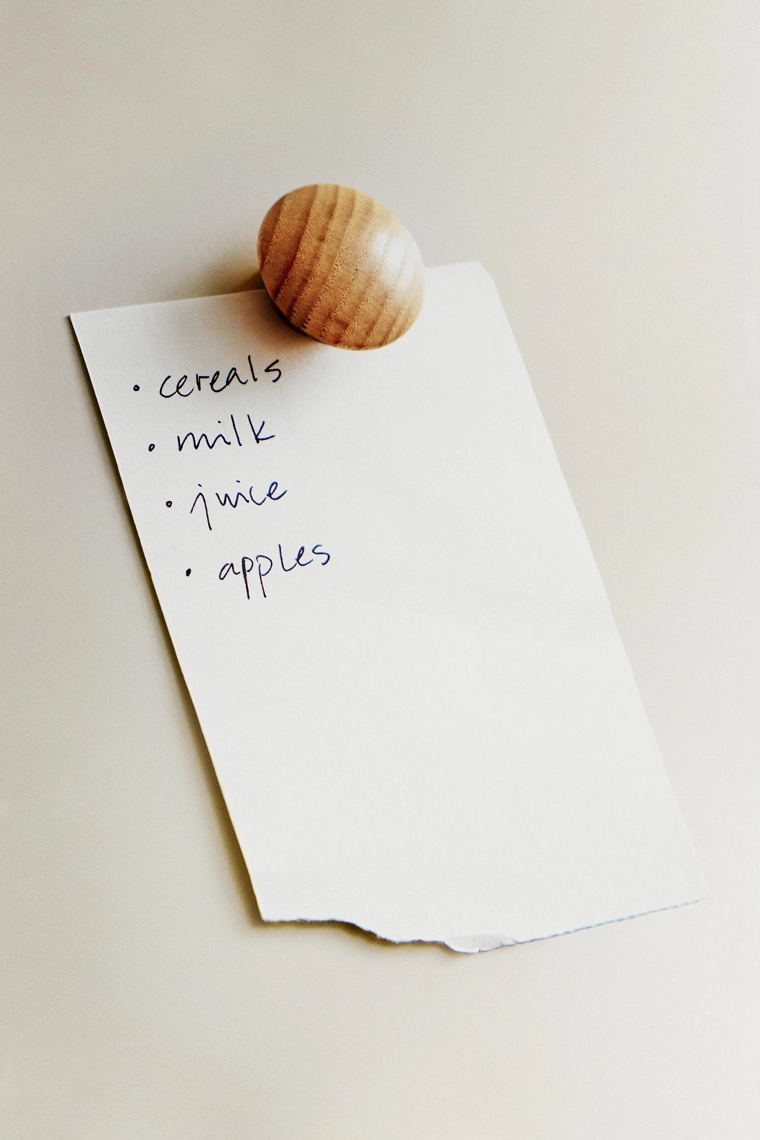 • cereals
• milk
• juice
• apples